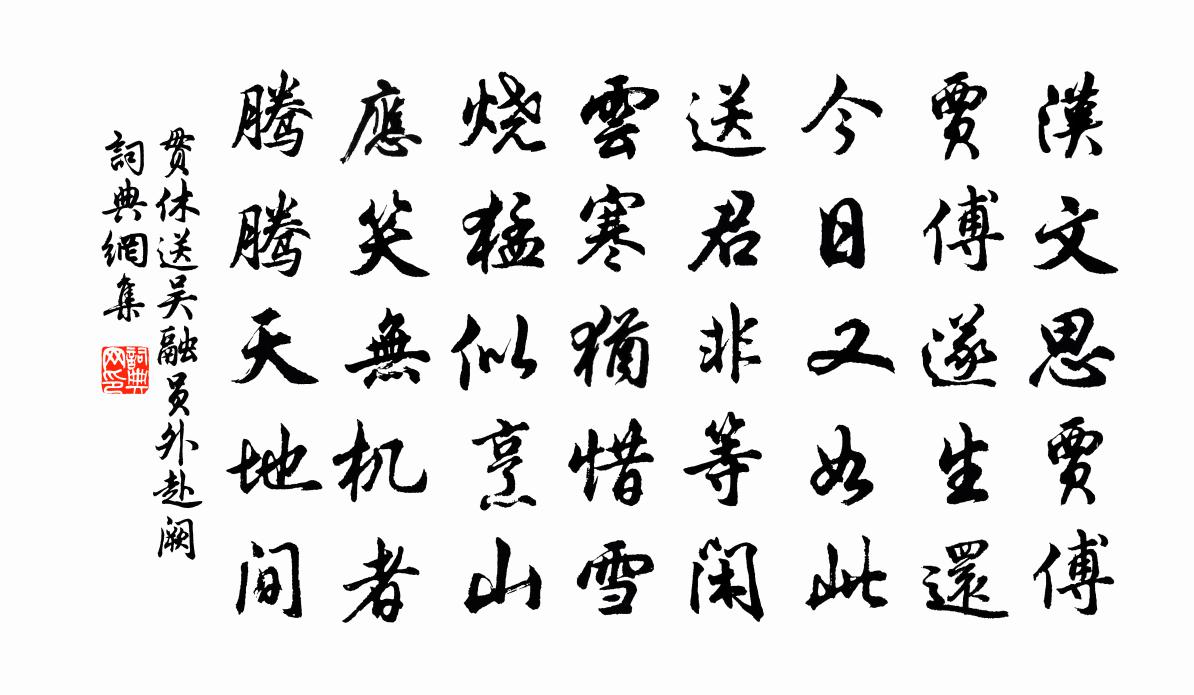 漢文思賈傅
賈傅遂生還
今日又如此
送君非等閑
雲寒猶惜雪
燒猛似烹山
應笑無机者
騰騰天地間
貫休送吴融員外赴闕
詞典網集
詞典网印